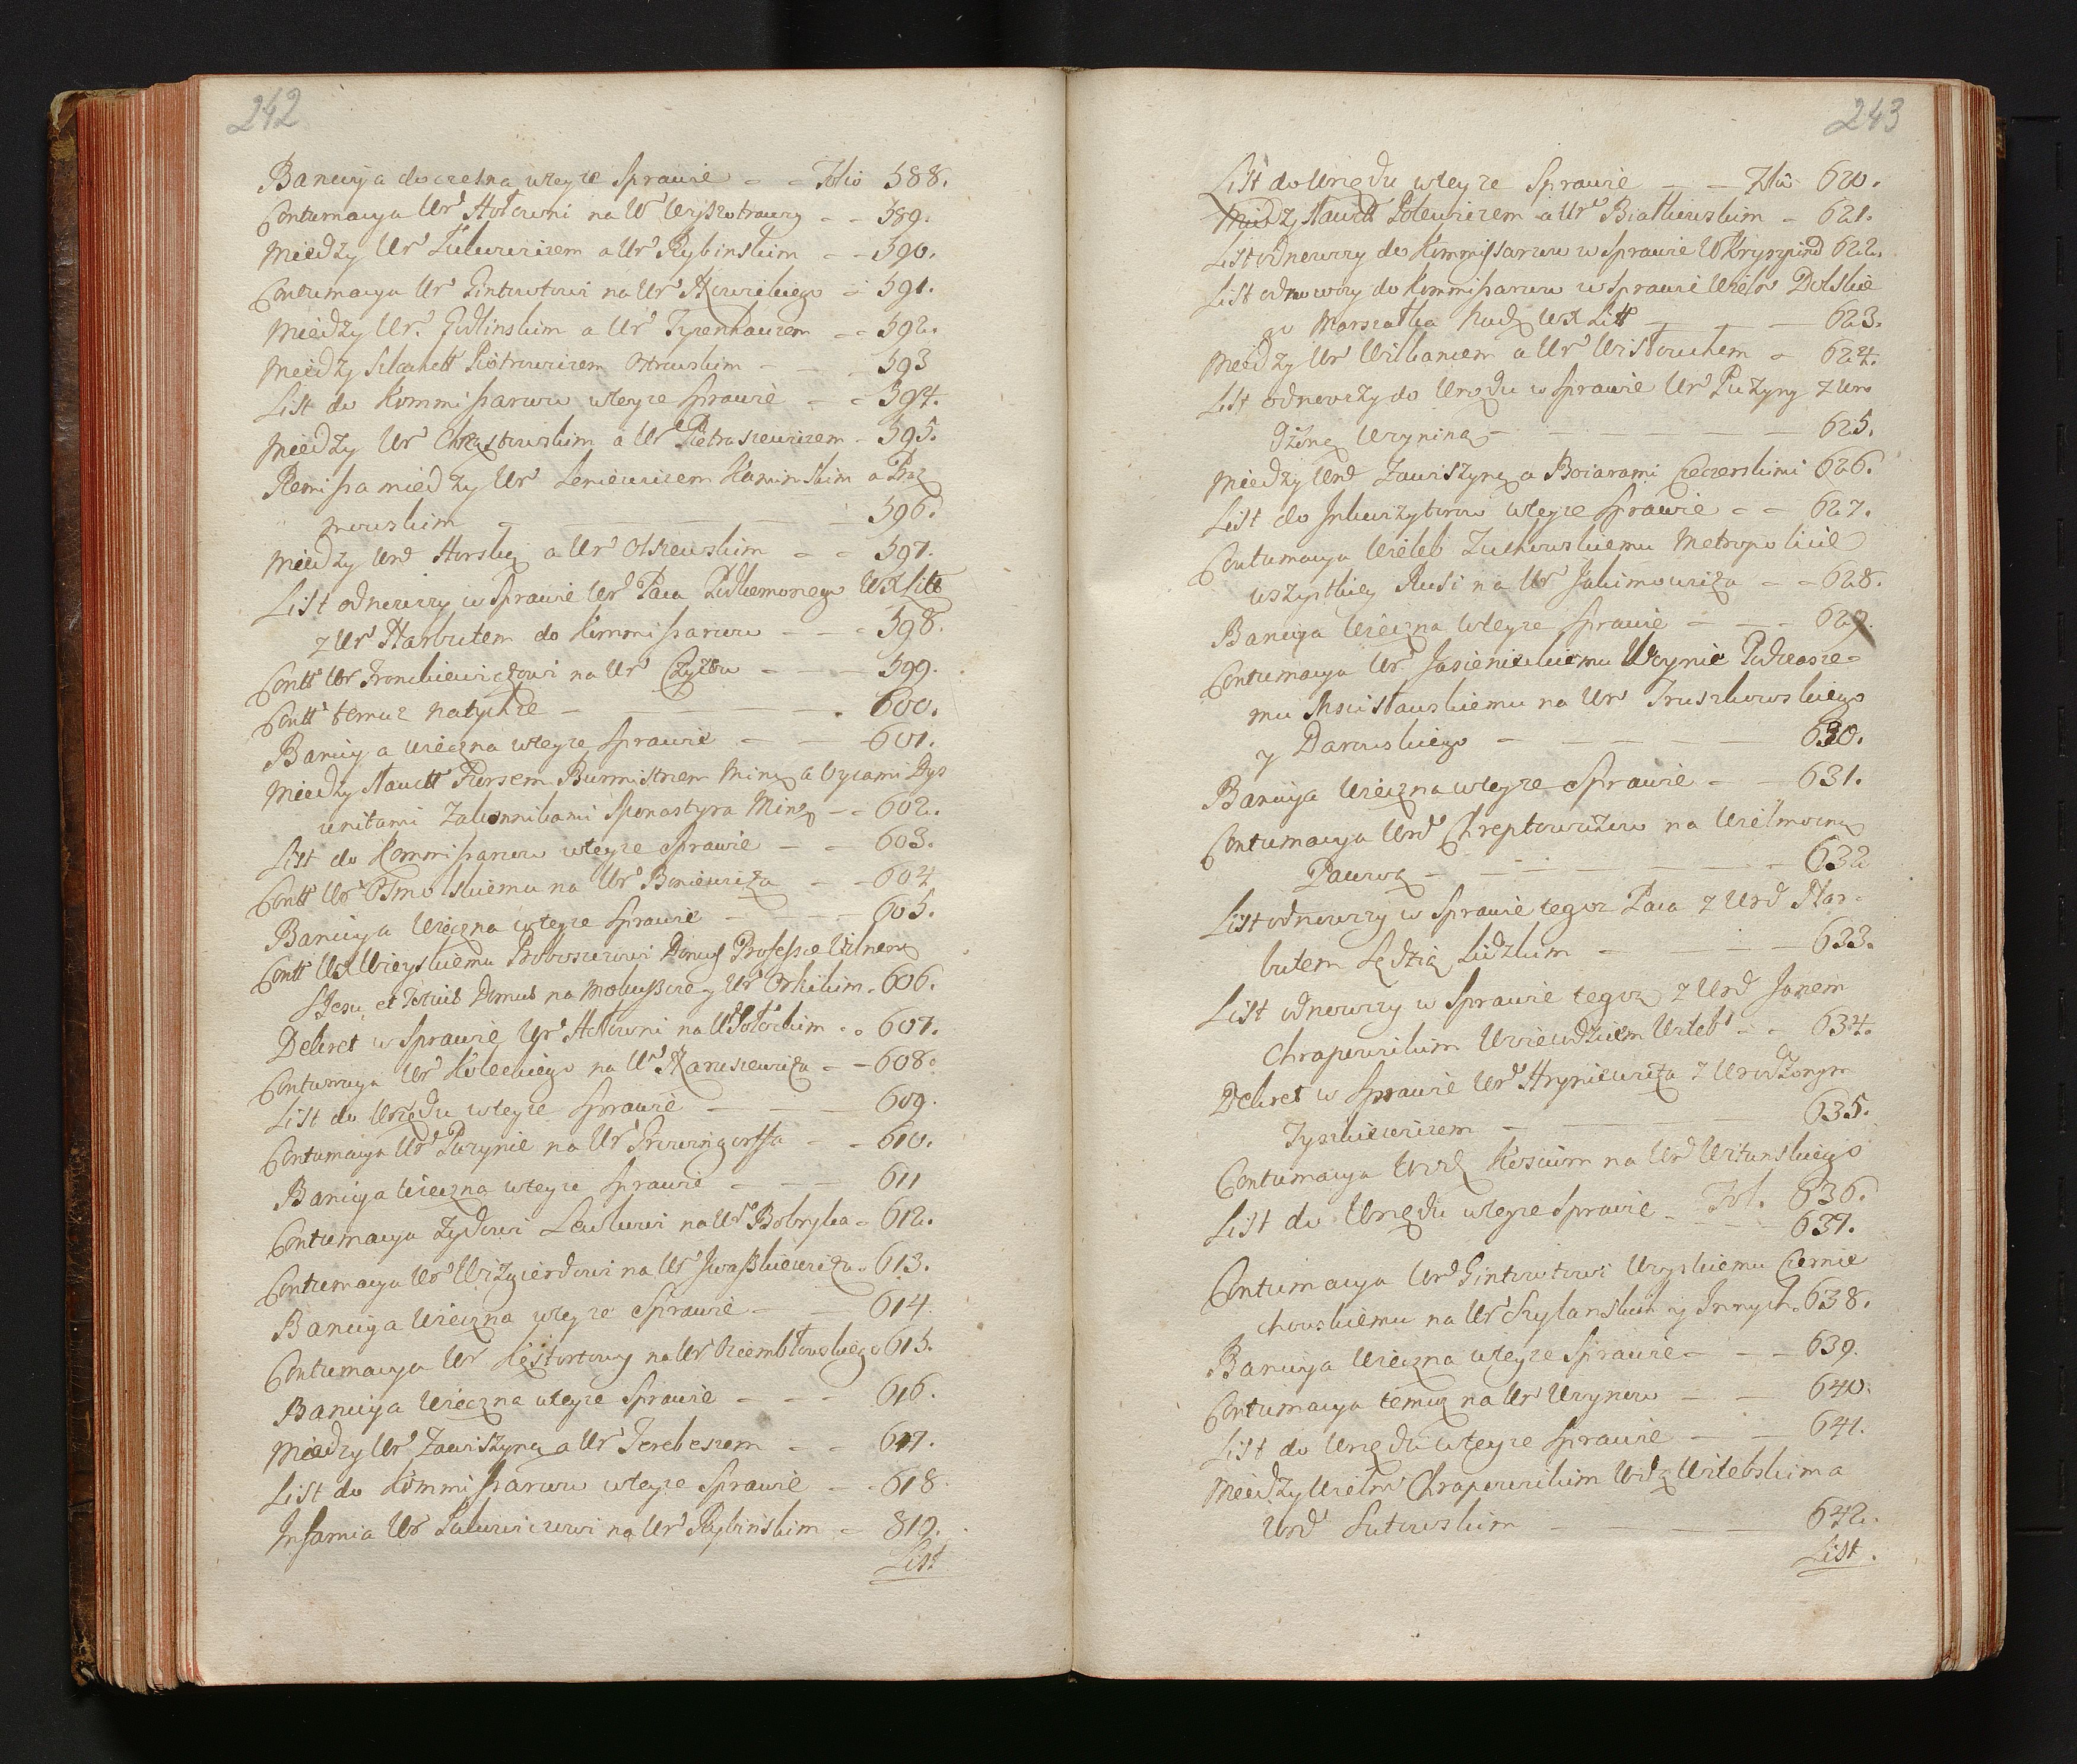 242
Banicya doczesna wteyze Sprawie - - Folio 588.
Contumacya Ur Hołowni na W - - 589.
Miedzy Ur Zulewiczem a Ur Rybinskim - - 590.
Contumacya Ur Gintowtowi na Ur - 591.
Miedzy Ur. Judlinskim a Ur Tyzenhauzem - - 592.
Miedzy Szlachett Piotrowiczem Ostrowskim - - - 593
List do Kommissarzow wteyze Sprawie - - 594.
Miedzy Ur Chrząstowskim a Ur Pietraszewiczem - 595.
Remissa miedzy Ur Leniewiczem Kaminskim a
mowskim - - - 596.
Miedzy Urd Horską a Ur Olszewskim - - 597.
List odnowczy w Sprawie Ur Paca Litto
z Ur Narbutem do Kommissarzow - - - 598.
Contt Ur Fronckiewiczowi na Ur Czyżow - - 599.
Contt temuz natychze - - 600.
Banicya wieczna wteyze Sprawie - - 601.
Miedzy Sławett Piersem Burmistrzem Minz a Oycami Dys
unitami Zakonnikami Monastyra Minz - - 602.
List do Kommissarzow wteyze Sprawie - - 603.
Contt Ur Osmolskiemu na Ur Boniewicza - - 604
Banicya Wieczna wteyze Sprawie - - 605.
Contt Proboszczowi Domus Professae Vilnens
S Jesu, et Totius Domus na y Ur - 606.
Dekret w Sprawie Ur Hołowni na - - 607.
Contumacya Ur Koleckiego na Ur Naruszewicza - - 608.
List do Urzędu wteyze Sprawie - - - 609.
Contumacya Ur Puzynie na Ur - - 610.
Banicya Wieczna wteyze Sprawie - - - 611
Contumacya Żydowi na Ur Bobryka - 612.
Contumacya Ur Wizgierdowi na Ur Iwaszkiewicza - 613.
Banicya Wieczna wteyze Sprawie - - 614.
Contumacya Ur Kęsztortowy na Ur Dziembłowskiego 615.
Banicya Wieczna wteyze Sprawie - - - 616.
Miedzy Ur Zawiszyną a Ur Terebeszem - - 617.
List do Kommissarzow wteyze Sprawie - - 618.
Infamia Ur Zulewiczowi na Ur Rybinskim - 819.
List
243
List do Urzędu wteyze Sprawie - - Folio 620.
Miedzy Sławett Polewiczem a Ur Białkowskim - 621.
List odnowczy do Kommissarzow w Sprawie W 622.
List odnowczy do Kommissarzow w Sprawie Wielm Dolskie
go Marszałka Litt - - - 623.
Miedzy Ur Wilbaniem a Ur Wistouchem - 624.
List odnowczy do Urzędu w Sprawie Ur Puzyny z Uro
dzoną - - - 625.
Miedzy Urd Zawiszyną a Boiarami Cieczerskimi 626.
List do Inkwizytorow wteyze Sprawie - - 627.
Contumacya Wieleb Zuchowskiemu Metropolicie
wszystkiey Rusi na Ur Jakimowicza - - 628.
Banicya wieczna wteyze Sprawie - - - 629.
Contumacya Ur Jasienickiemu Podczasze-
mu Mscisławskiemu na Ur Truszkowskiego
y Darowskiego - - - 630.
Banicya Wieczna wteyze Sprawie - - 631.
Contumacya Urd Chreptowiczow na Wielmozną
Pacową - - - 632
List odnowczy w Sprawie tegoz Paca z Urd Nar-
butem Sędzią Lidzkim - - - 633.
List odnowczy w Sprawie tegoz z Urd Janem
Chrapowickim Witeb - - 634.
Dekret w Sprawie Ur Hryniewicza z Urodzonym
Tyszkiewiczem - - - 635.
Contumacya Kosciom na Ur Witanskiego
Fol. 636.
List do Urzędu wteyze Sprawie - - - 637.
Contumacya Urd Gintowtowi Czernie
chowskiemu na Ur Szylanskich y Innych 638.
Banicya Wieczna wteyze Sprawie - - - 639.
Contumacya temuz na Ur - - 640.
List do Urzędu wteyze Sprawie - - 641.
Miedzy Wielm Chrapowickim Witebskim a
Urd Sutowskim - - - 642.
List.